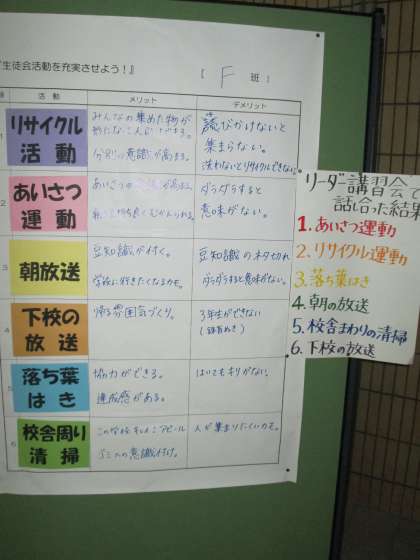 生徒会活動を充実させよう！』
【 F 班】
活 動 メリット デメリット
1 リサイクル活動
みんなの集めた物が
分別の意識が高まる。
読びかけないと
集まらない。
洗わないとリサイクルできない。
2 あいさつ運動
あいさつの
が高まる。
ダラダラすると
意味がない。
3 朝放送
豆知識が付く。
学校に行きたくなるかも。
豆知識のネタ切れ
ダラダラすると意味がない。
4 下校の放送
帰る雰囲気づくり。
3年生ができない
5 落ち葉はき
協力ができる。
達成感がある。
はいてもキリがない。
6 校舎周り清掃
この学校きれいアピール
ゴミの意識付け。
人が集まりにくいかも。
リーダー講習会で
話し合った結果
1.あいさつ運動
2.リサイクル活動
3.落ち葉はき
4.朝の放送
5.校舎まわりの清掃
6.下校の放送